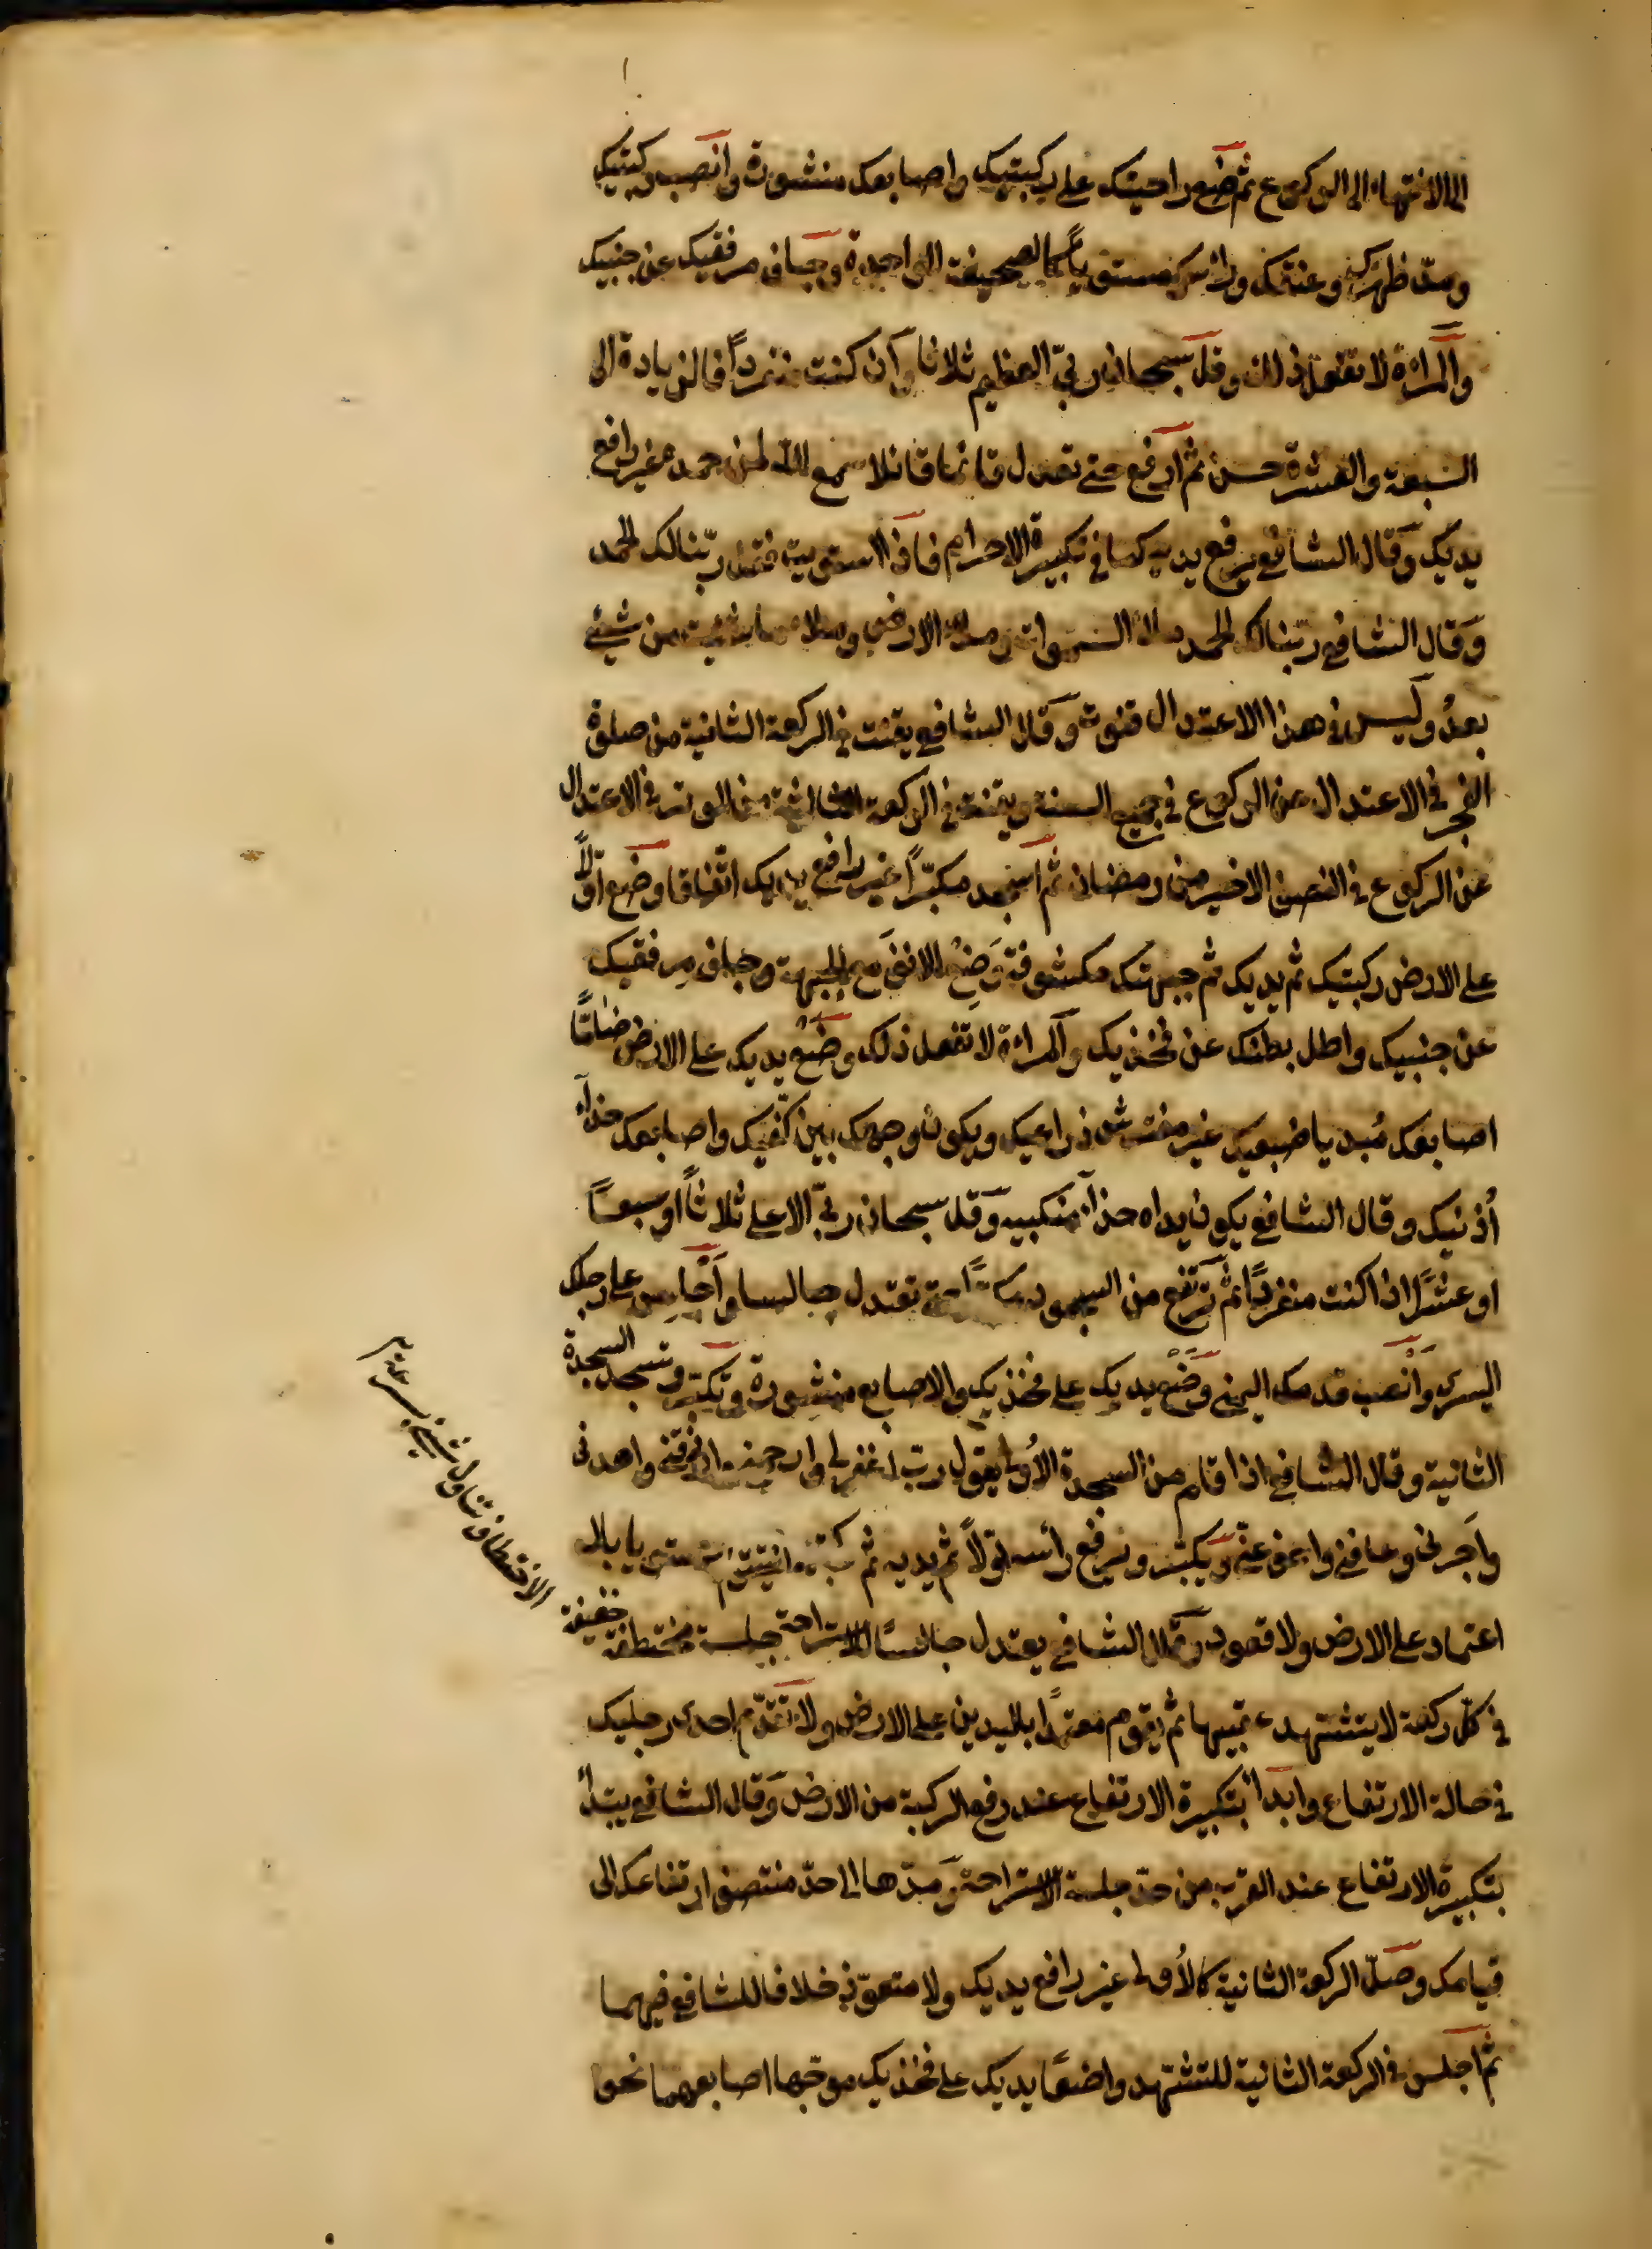 الى الانتهاء الى الركوع ثم ضع راحتيك على ركبتيك واصابعك منشورة وانصب ركبتيك
ومدّ ظهرك وعنقك ورأسك مستوياً كالصحيفة الواحدة وجاف مرفقيك عن جنبيك
والمرأة لا تفعل ذلك وقل سبحان ربّي العظيم ثلاثا وان كنت منفرداً فالزيادة الى
السبعة والعشرة حسن ثم ارفع حتى تعدل قائما قائلا سمع الله لمن حمده غير رافع
يديك وقال الشافعي يرفع يديه كما في تكبيرة الاحرام فاذا استويت فقل ربّنا لك الحمد
وقال الشافعي ربّنا لك الحمد ملأ السموات وملأ الارض وملأ ما شئت من شيئ
بعدُ وليس في هذا الاعتدال قنوت وقال الشافعي يقنت في الركعة الثانية من صلوة
الفجر في الاعتدال عن الركوع في جميع السنة ويقنت في الركعة الثالثة من الوتر في الاعتدال
عن الركوع في النصف الاخير من رمضان ثم اسجد مكبّراً غير رافع يديك اتفاقا وضع اوّلاً
على الارض ركبتيك ثم يديك ثم جبهتك مكشوفة وضِع الانف مع الجبهة وجاف مرفقيك
عن جنبيك واطل بطنك عن فخذيك والمرأة لا تفعل ذلك وضع يديك على الارض ضامّاً
اصابعك مُبديا ضبعيك غير مفترش ذراعيك ويكون وجهك بين كفيك واصابعك حذاء
أذنيك وقال الشافعي يكون يداه حذاء منكبيه وقل سبحان ربّي الاعلى ثلاثاً او سبعاً
او عشرًا اذا كنت منفرداً ثم ترتفع من السجود حتى تعتدل جالسا واجلس على رجلك
اليسرى وانصب قدمك اليمنى وضع يديك على فخذيك والاصابع منشورة وتكبّر وتسجد السجدة
الثانية وقال الشافعي اذا قام من السجدة الأولى يقول ربّ اغفر لي وارحمني وارزقني واهدني
واجرني وعافني واعف عنّي ويكبّر ويرفع رأسه اوّلاً ثم يديه ثم ركبتيه بلا
اعتماد على الارض ولا قعود وقال الشافعي يعتدل جالسًا للاستراحة جلسة مختطفة خفيفة
في كلّ ركعة لا يتشهد عقيبها ثم يقوم معتمدًا باليدين على الارض ولا تقدّم احدى رجليك
في حالة الارتفاع وابدأ بتكبيرة الارتفاع عند رفع الركبة من الارض وقال الشافعي يبتدأ
بتكبيرة الارتفاع عند القرب من حدّ جلسة الاستراحة ومدّها الى حدّ منتصف ارتفاعك الى
قيامك وصلّ الركعة الثانية كالأولى غير رافع يديك ولا متعوّذ خلافا للشافعي فيهما
ثم اجلس في الركعة الثانية للتشهّد واضعًا يديك على فخذيك موجّها اصابعهما نحو
الاختطاف تناول شيئ بسرعة